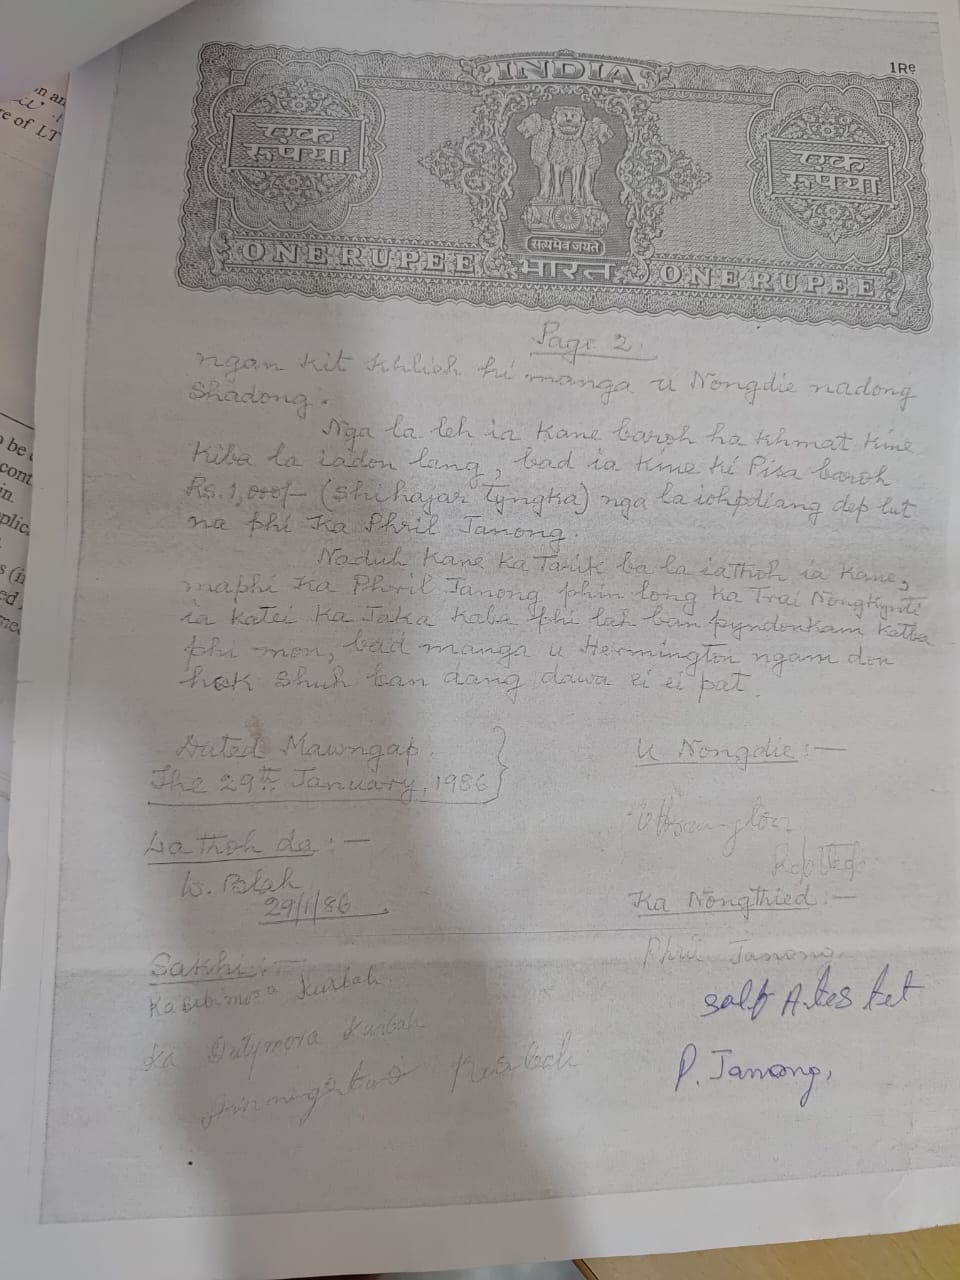 1Re
INDIA
एक
रूपया
एक
रूपया
सत्यमेव जयते
ONE RUPEE
भारत
ONE RUPEE
Page 2.
ngan kit khlieh hi manga u Nongdie nadong
shadong.
Nga la leh ia kane baroh ha khmat kine
kiba la iadon lang, bad ia kine ki Pisa baroh
Rs. 1,000/- (shi hajar tyngka) nga la iohpdiang dep lut
na phi Ka Phril Janong.
Naduh kane ka Tarik ba la iathoh ia kane,
maphi Ka Phril Janong phin long ka Trai Nongkynti
ia katei ka Jaka kaba phi lah ban pyndonkam katba
phi mon, bad manga u Hermington ngam don
hok shuh ban dang dawa ei ei pat.
Dated Mawngap.
The 29th January, 1986
U Nongdie :-
La thoh da :-
W. Blah
29/1/86
Ka Nongthied :-
Phril Janong
Sakhi :-
Ka Kurbah.
Ka Kurbah
Kurbah
self Attes tet
P. Janong,
on an
re of LT
be
cont
in